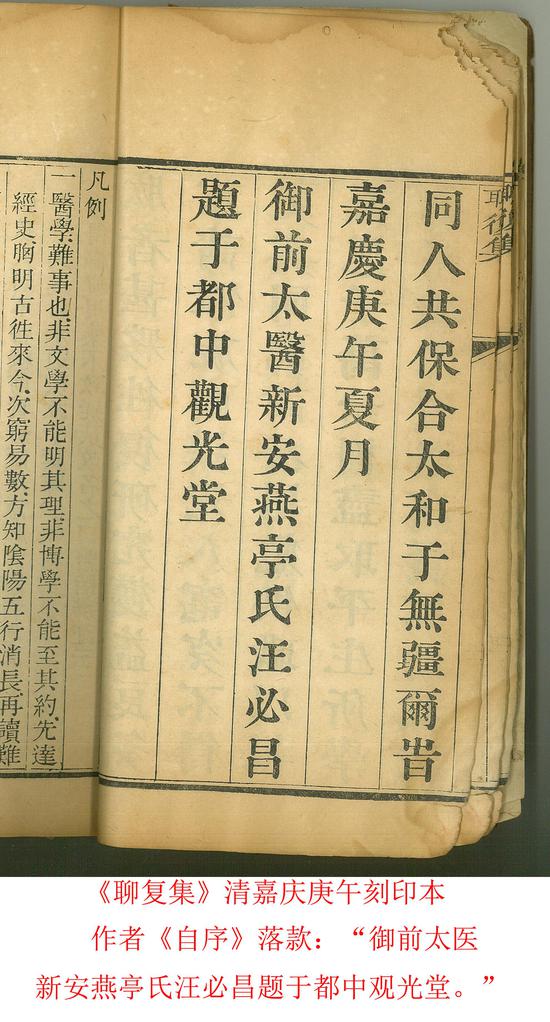 聊復集
同人共保合太和于無疆爾旹
嘉慶庚午夏月
御前太醫新安燕亭氏汪必昌
題于都中觀光堂
凡例
一醫學難事也、非文學不能明其理非博學不能至其約、先達
經史、胸明古徃來今、次窮易數、方知陰陽五行消長、再讀難
《聊复集》清嘉庆庚午刻印本
作者《自序》落款：“御前太医
新安燕亭氏汪必昌题于都中观光堂。”